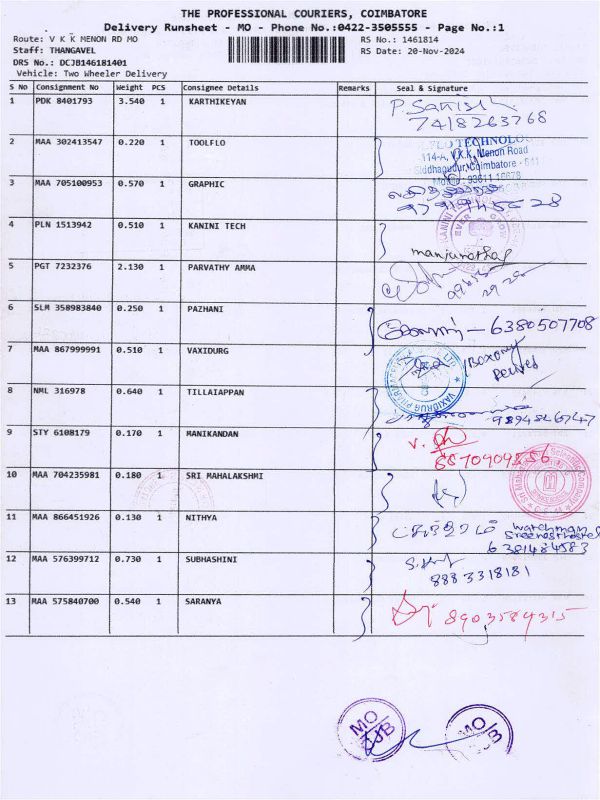 THE PROFESSIONAL COURIERS, COIMBATORE
Delivery Runsheet - MO - Phone No.:0422-3505555 - Page No.:1
Route: V K K MENON RD MO RS No.: 1461814
Staff: THANGAVEL RS Date: 20-Nov-2024
DRS No.: DCJB146181401
Vehicle: Two Wheeler Delivery
S No Consignment No Weight PCS Consignee Details Remarks Seal & Signature
1 PDK 8401793 3.540 1 KARTHIKEYAN P. Satish
7418263768
2 MAA 302413547 0.220 1 TOOLFLO FLO TECHNOLOG
114-A, V.K.K. Menon Road
Siddhapudur, Coimbatore - 641
3 MAA 705100953 0.570 1 GRAPHIC
4 PLN 1513942 0.510 1 KANINI TECH KANINI
5 PGT 7232376 2.130 1 PARVATHY AMMA
6 SLM 358983840 0.250 1 PAZHANI 6380507708
7 MAA 867999991 0.510 1 VAXIDURG
8 NML 316978 0.640 1 TILLAIAPPAN
9 STY 6108179 0.170 1 MANIKANDAN
10 MAA 704235981 0.180 1 SRI MAHALAKSHMI
11 MAA 866451926 0.130 1 NITHYA watchman
6381484583
12 MAA 576399712 0.730 1 SUBHASHINI
8883318181
13 MAA 575840700 0.540 1 SARANYA 8903584315
MO MO
JB JB